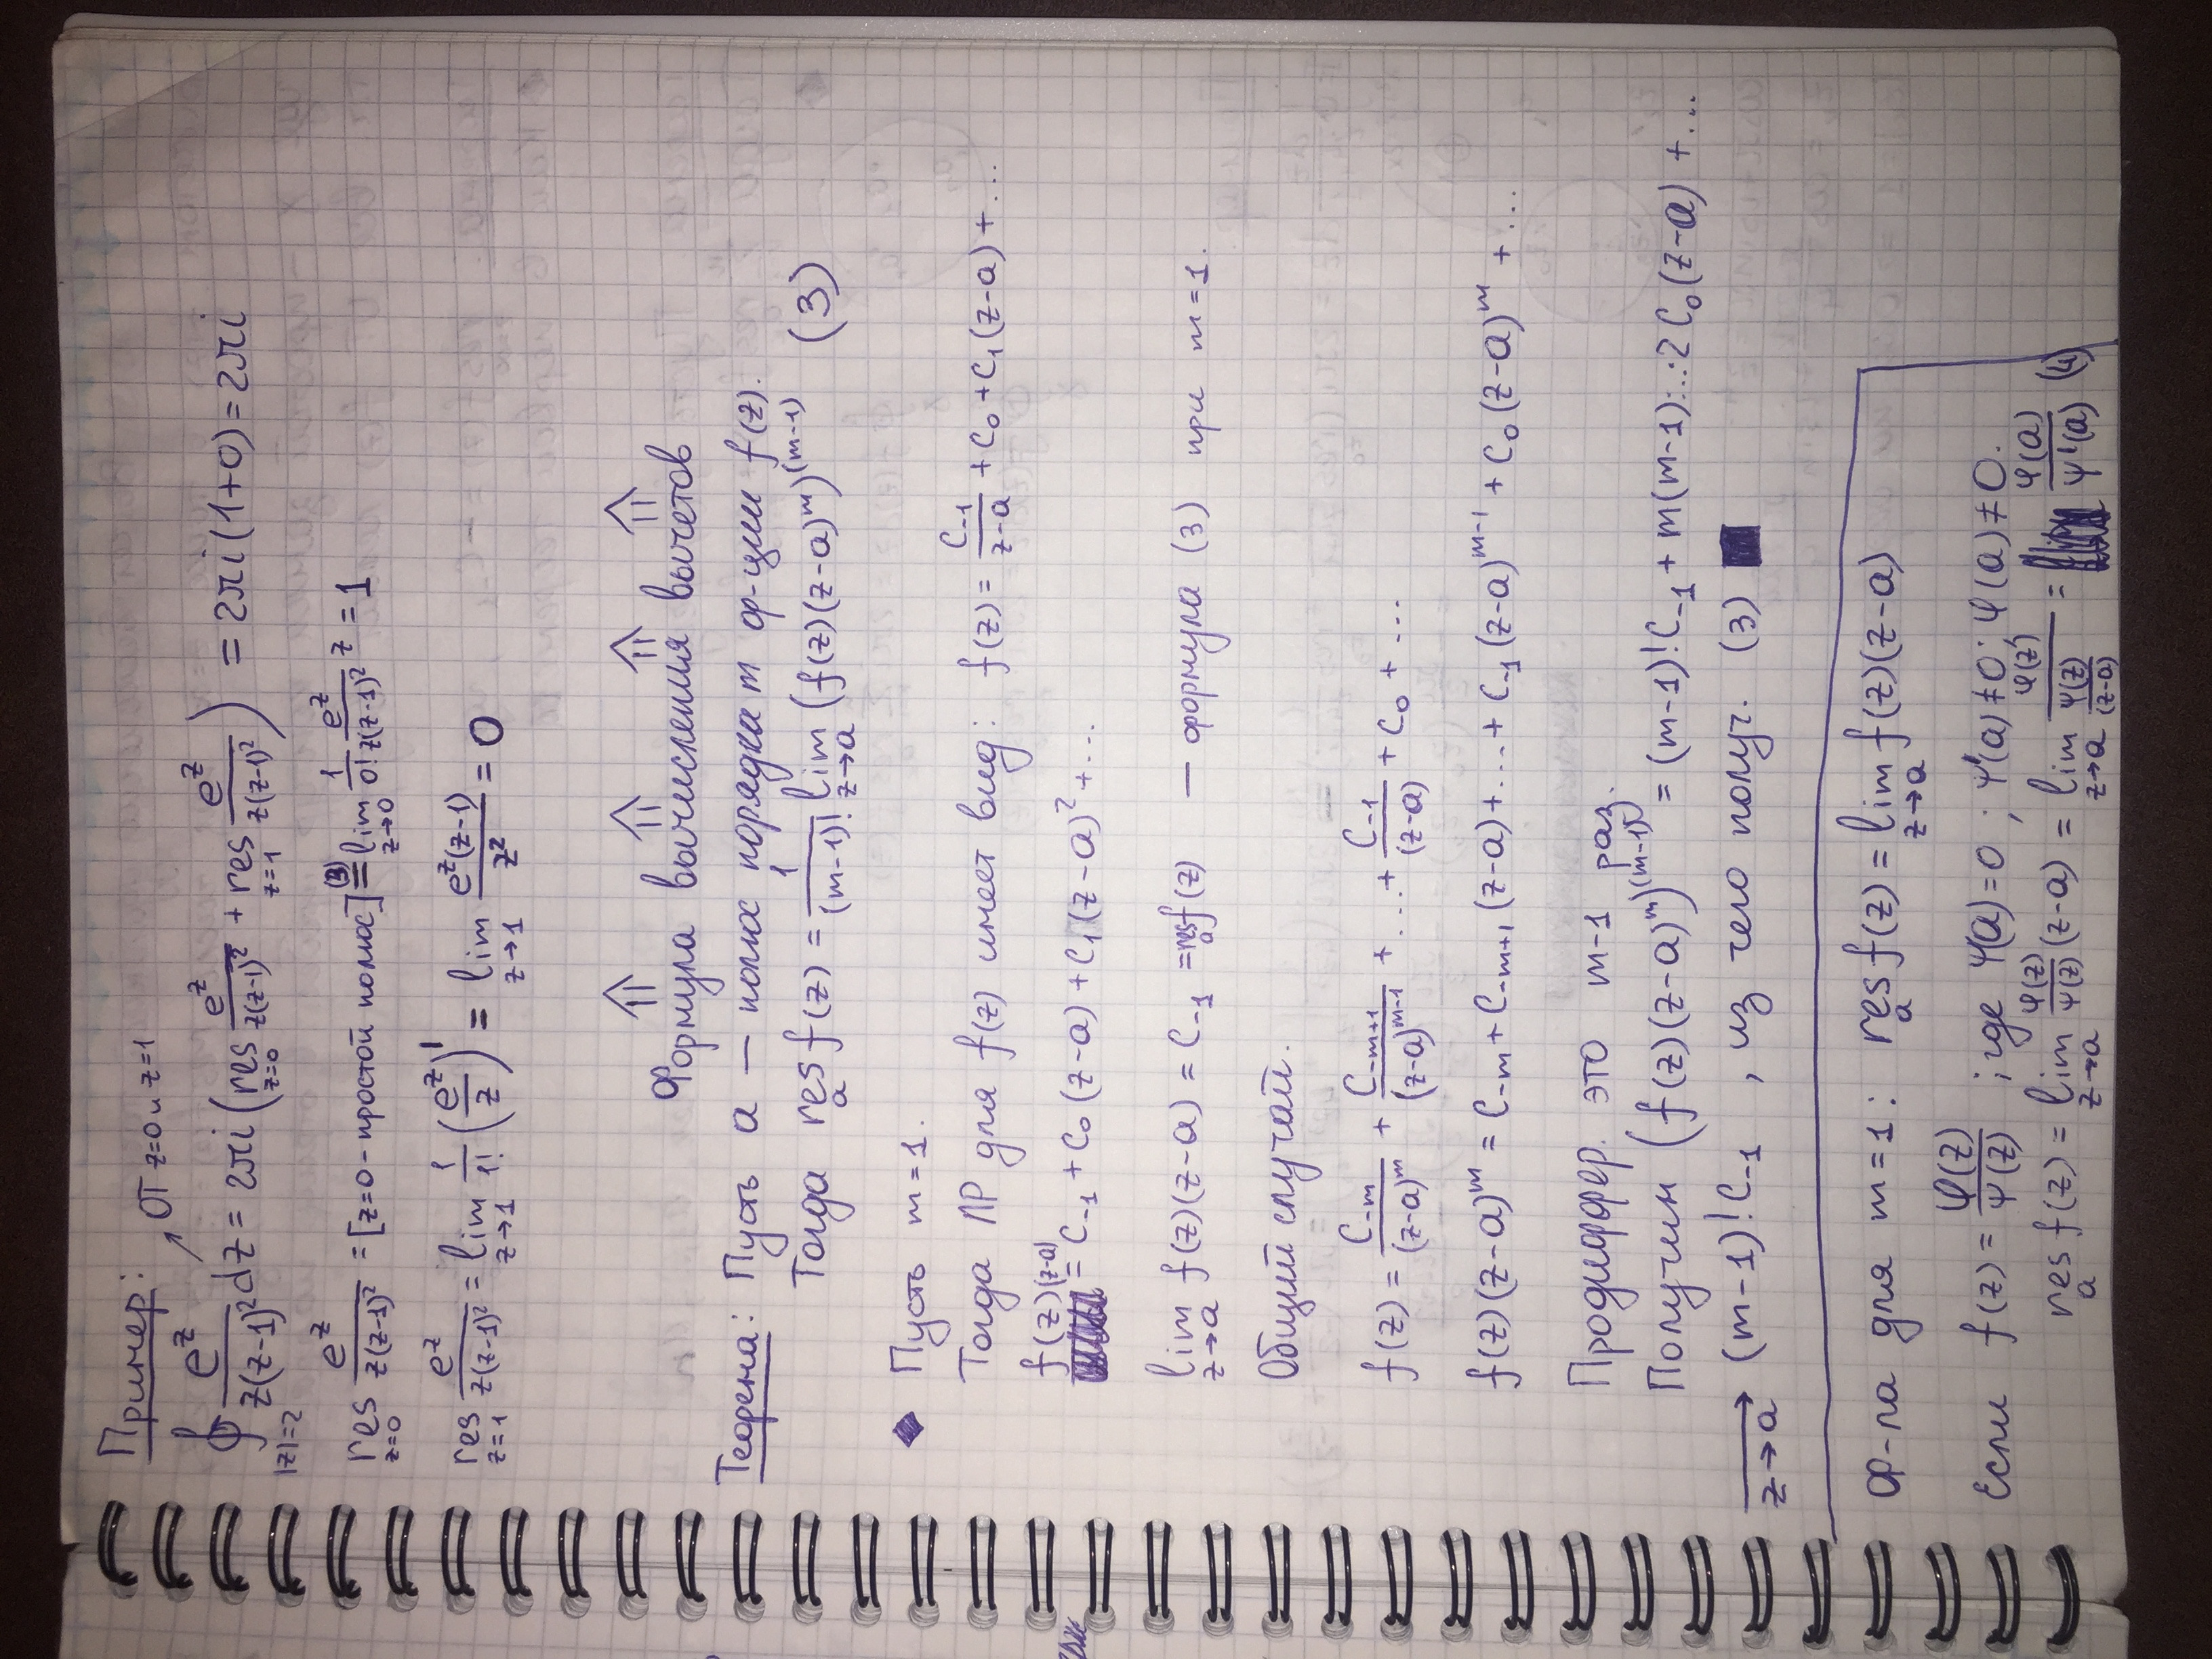 Пример:
ОТ z=0 и z=1
∮_{|z|=2} e^z/(z(z-1)^2) dz = 2πi (res_{z=0} e^z/(z(z-1)^2) + res_{z=1} e^z/(z(z-1)^2)) = 2πi(1+0) = 2πi
res_{z=0} e^z/(z(z-1)^2) = [z=0 - простой полюс] =^{(3)} lim_{z→0} 1/0! e^z/(z(z-1)^2) z = 1
res_{z=1} e^z/(z(z-1)^2) = lim_{z→1} 1/1! (e^z/z)' = lim_{z→1} e^z(z-1)/z^2 = 0
⇑ ⇑ ⇑ ⇑
Формула вычисления вычетов
Теорема: Пусть a — полюс порядка m ф-ции f(z).
Тогда res_a f(z) = 1/(m-1)! lim_{z→a} (f(z)(z-a)^m)^{(m-1)} (3)
◆ Пусть m=1.
Тогда ЛР для f(z) имеет вид: f(z) = C_{-1}/(z-a) + C_0 + C_1(z-a) + ...
f(z)(z-a) = C_{-1} + C_0(z-a) + C_1(z-a)^2 + ...
lim_{z→a} f(z)(z-a) = C_{-1} = res_a f(z) — формула (3) при m=1.
Общий случай.
f(z) = C_{-m}/(z-a)^m + C_{-m+1}/(z-a)^{m-1} + ... + C_{-1}/(z-a) + C_0 + ...
f(z)(z-a)^m = C_{-m} + C_{-m+1}(z-a) + ... + C_{-1}(z-a)^{m-1} + C_0(z-a)^m + ...
Продиффер. это m-1 раз.
Получим (f(z)(z-a)^m)^{(m-1)} = (m-1)! C_{-1} + m(m-1)·...·2 C_0(z-a) + ...
→_{z→a} (m-1)! C_{-1} , из чего получ. (3) ■
Ф-ла для m=1: res_a f(z) = lim_{z→a} f(z)(z-a)
Если f(z) = φ(z)/ψ(z) ; где ψ(a)=0 ; ψ'(a)≠0 ; φ(a)≠0.
res_a f(z) = lim_{z→a} φ(z)/ψ(z) (z-a) = lim_{z→a} φ(z)/(ψ(z)/(z-a)) = φ(a)/ψ'(a) (4)